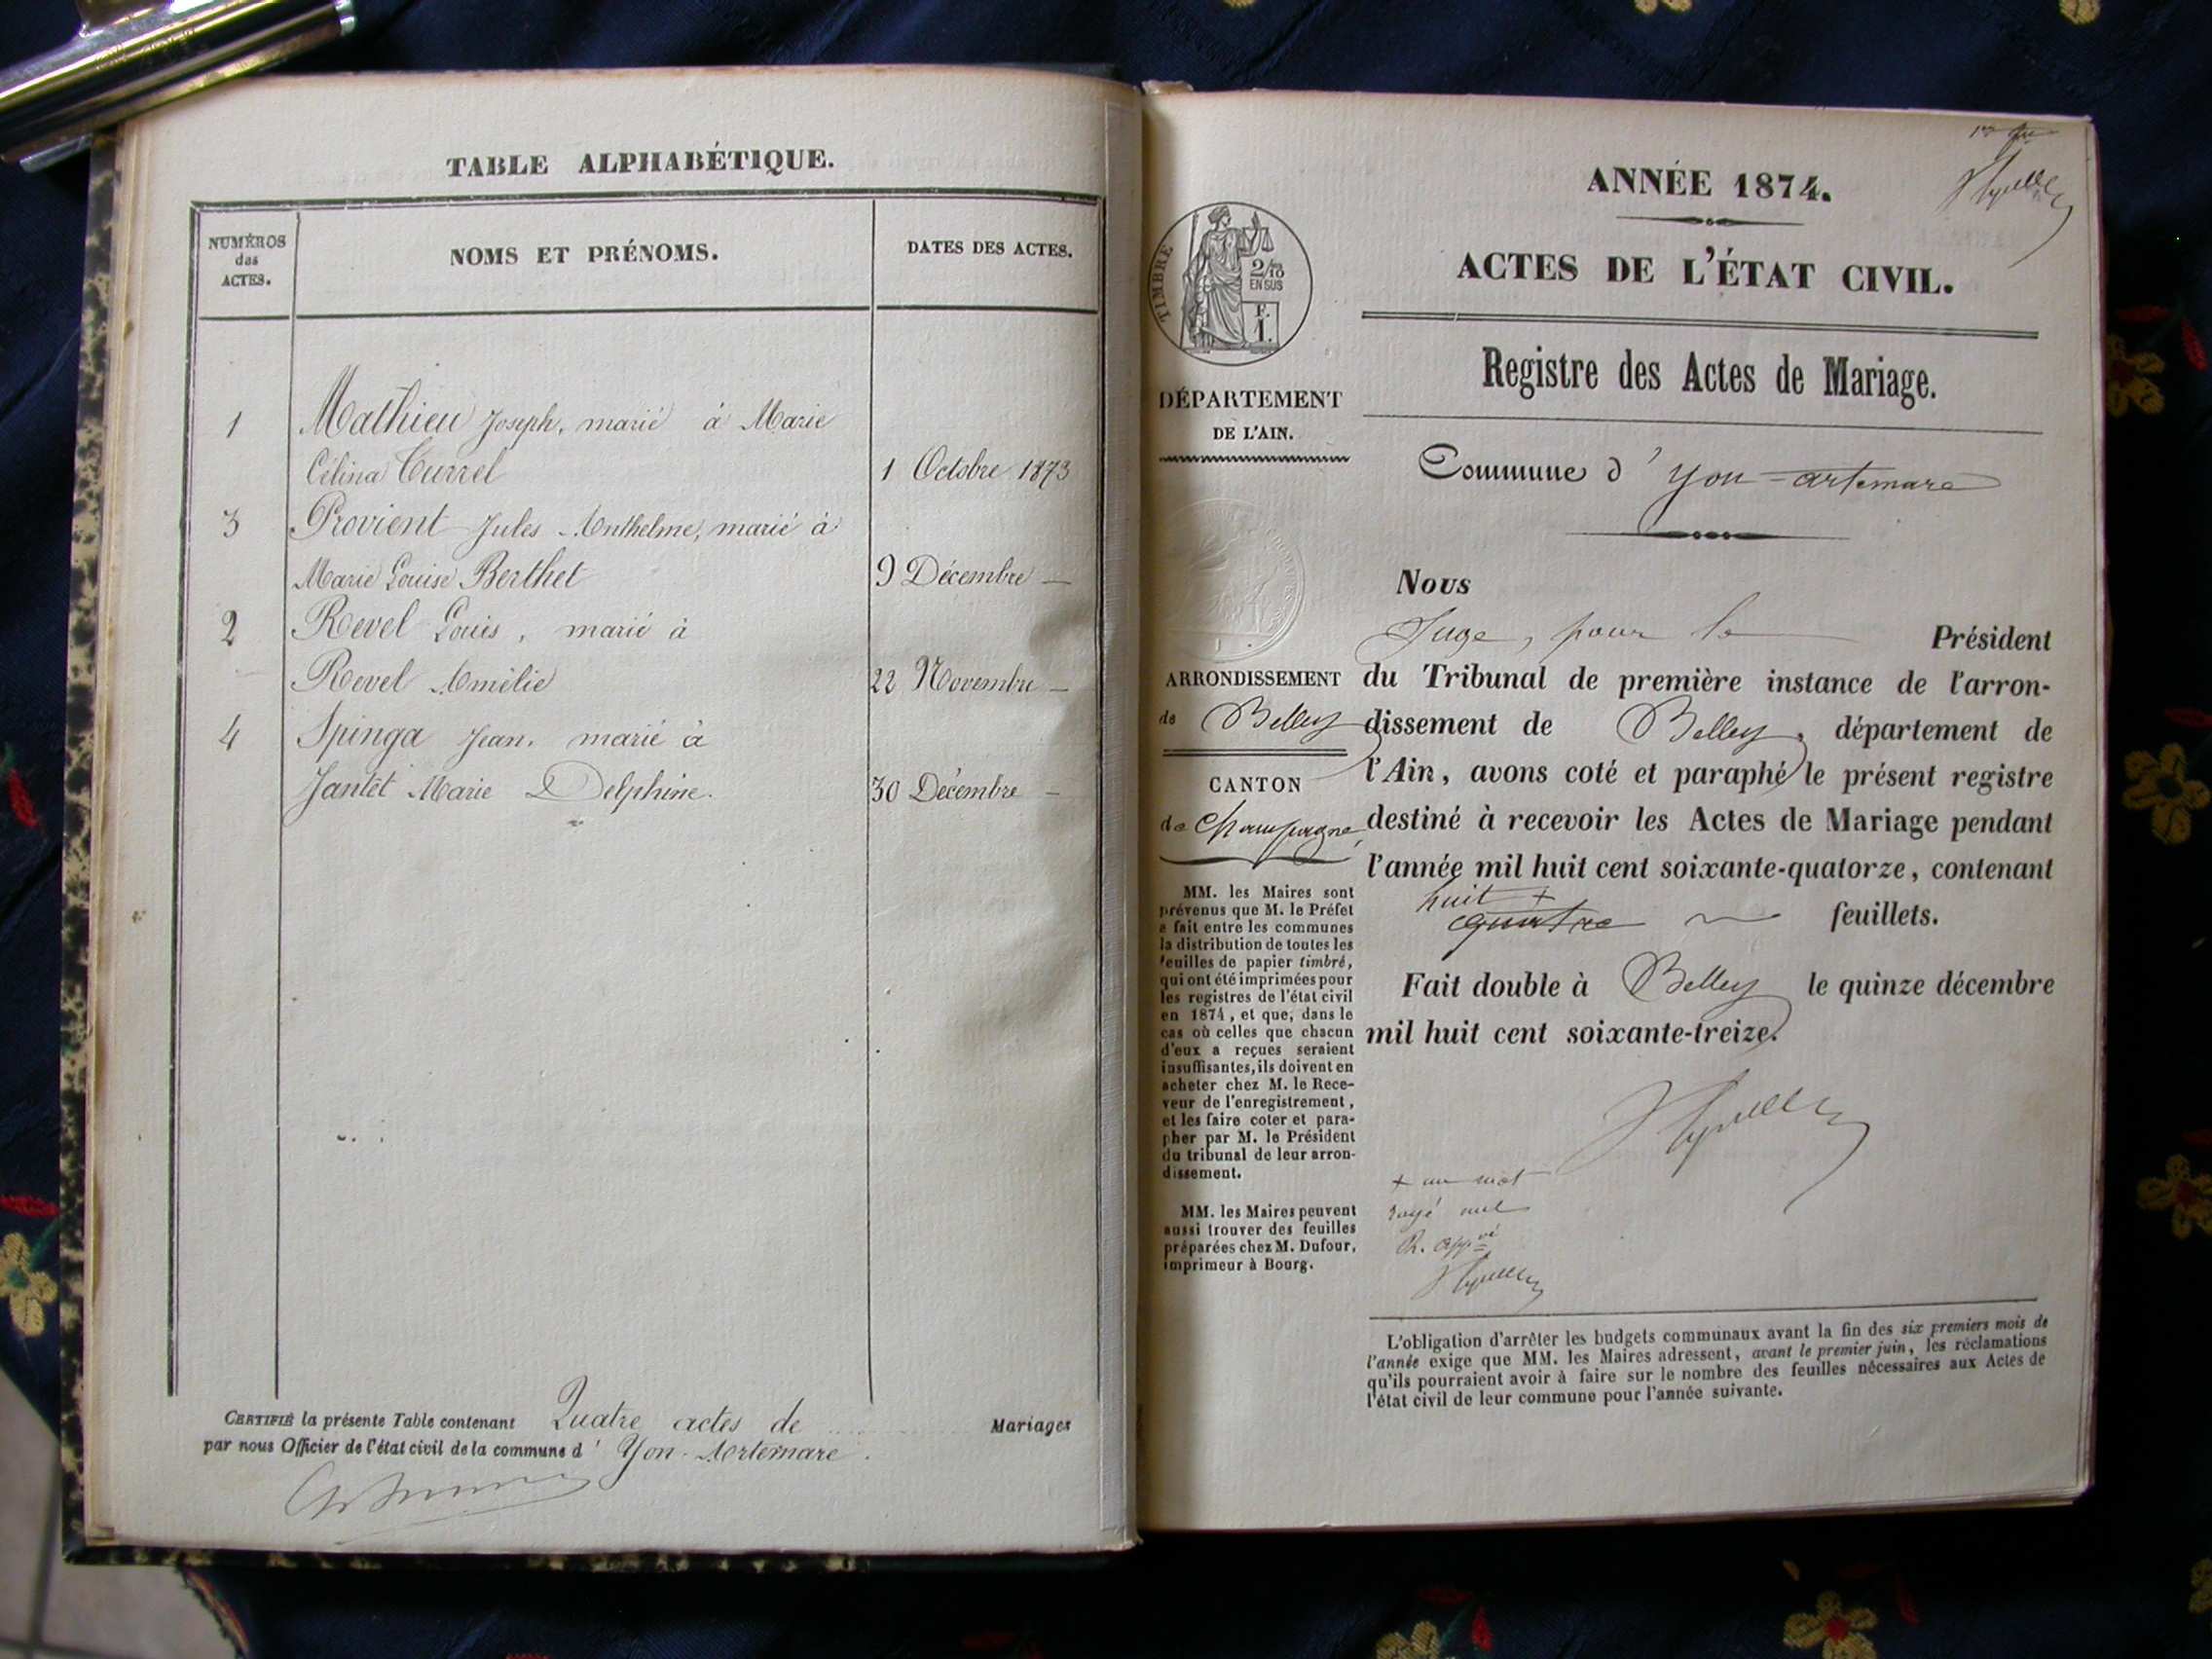 TABLE ALPHABÉTIQUE.
NUMÉROS
des
ACTES.
NOMS ET PRÉNOMS.
DATES DES ACTES.
1 Mathieu Joseph, marié à Marie
Célina Currel 1 Octobre 1873
3 Provient Jules Anthelme, marié à
Marie Louise Berthet 9 Décembre —
2 Revel Louis, marié à
Revel Amélie 22 Novembre —
4 Spinga Jean, marié à
Jantet Marie Delphine. 30 Décembre —
CERTIFIÉ la présente Table contenant Quatre actes de Mariages
par nous Officier de l'état civil de la commune d' Yon-Artemare.
ANNÉE 1874.
ACTES DE L'ÉTAT CIVIL.
Registre des Actes de Mariage.
Commune d' Yon-artemare
TIMBRE
2/10
EN SUS
F.
1.
DÉPARTEMENT
DE L'AIN.
ARRONDISSEMENT
de Belley
CANTON
de Champagne
MM. les Maires sont
prévenus que M. le Préfet
a fait entre les communes
la distribution de toutes les
feuilles de papier timbré,
qui ont été imprimées pour
les registres de l'état civil
en 1874, et que, dans le
cas où celles que chacun
d'eux a reçues seraient
insuffisantes, ils doivent en
acheter chez M. le Rece-
veur de l'enregistrement,
et les faire coter et para-
pher par M. le Président
du tribunal de leur arron-
dissement.
MM. les Maires peuvent
aussi trouver des feuilles
préparées chez M. Dufour,
imprimeur à Bourg.
Nous
Juge, pour le Président
du Tribunal de première instance de l'arron-
dissement de Belley, département de
l'Ain, avons coté et paraphé le présent registre
destiné à recevoir les Actes de Mariage pendant
l'année mil huit cent soixante-quatorze, contenant
huit +
quatre feuillets.
Fait double à Belley le quinze décembre
mil huit cent soixante-treize.
+ un mot
rayé nul
R. appvé
L'obligation d'arrêter les budgets communaux avant la fin des six premiers mois de
l'année exige que MM. les Maires adressent, avant le premier juin, les réclamations
qu'ils pourraient avoir à faire sur le nombre des feuilles nécessaires aux Actes de
l'état civil de leur commune pour l'année suivante.